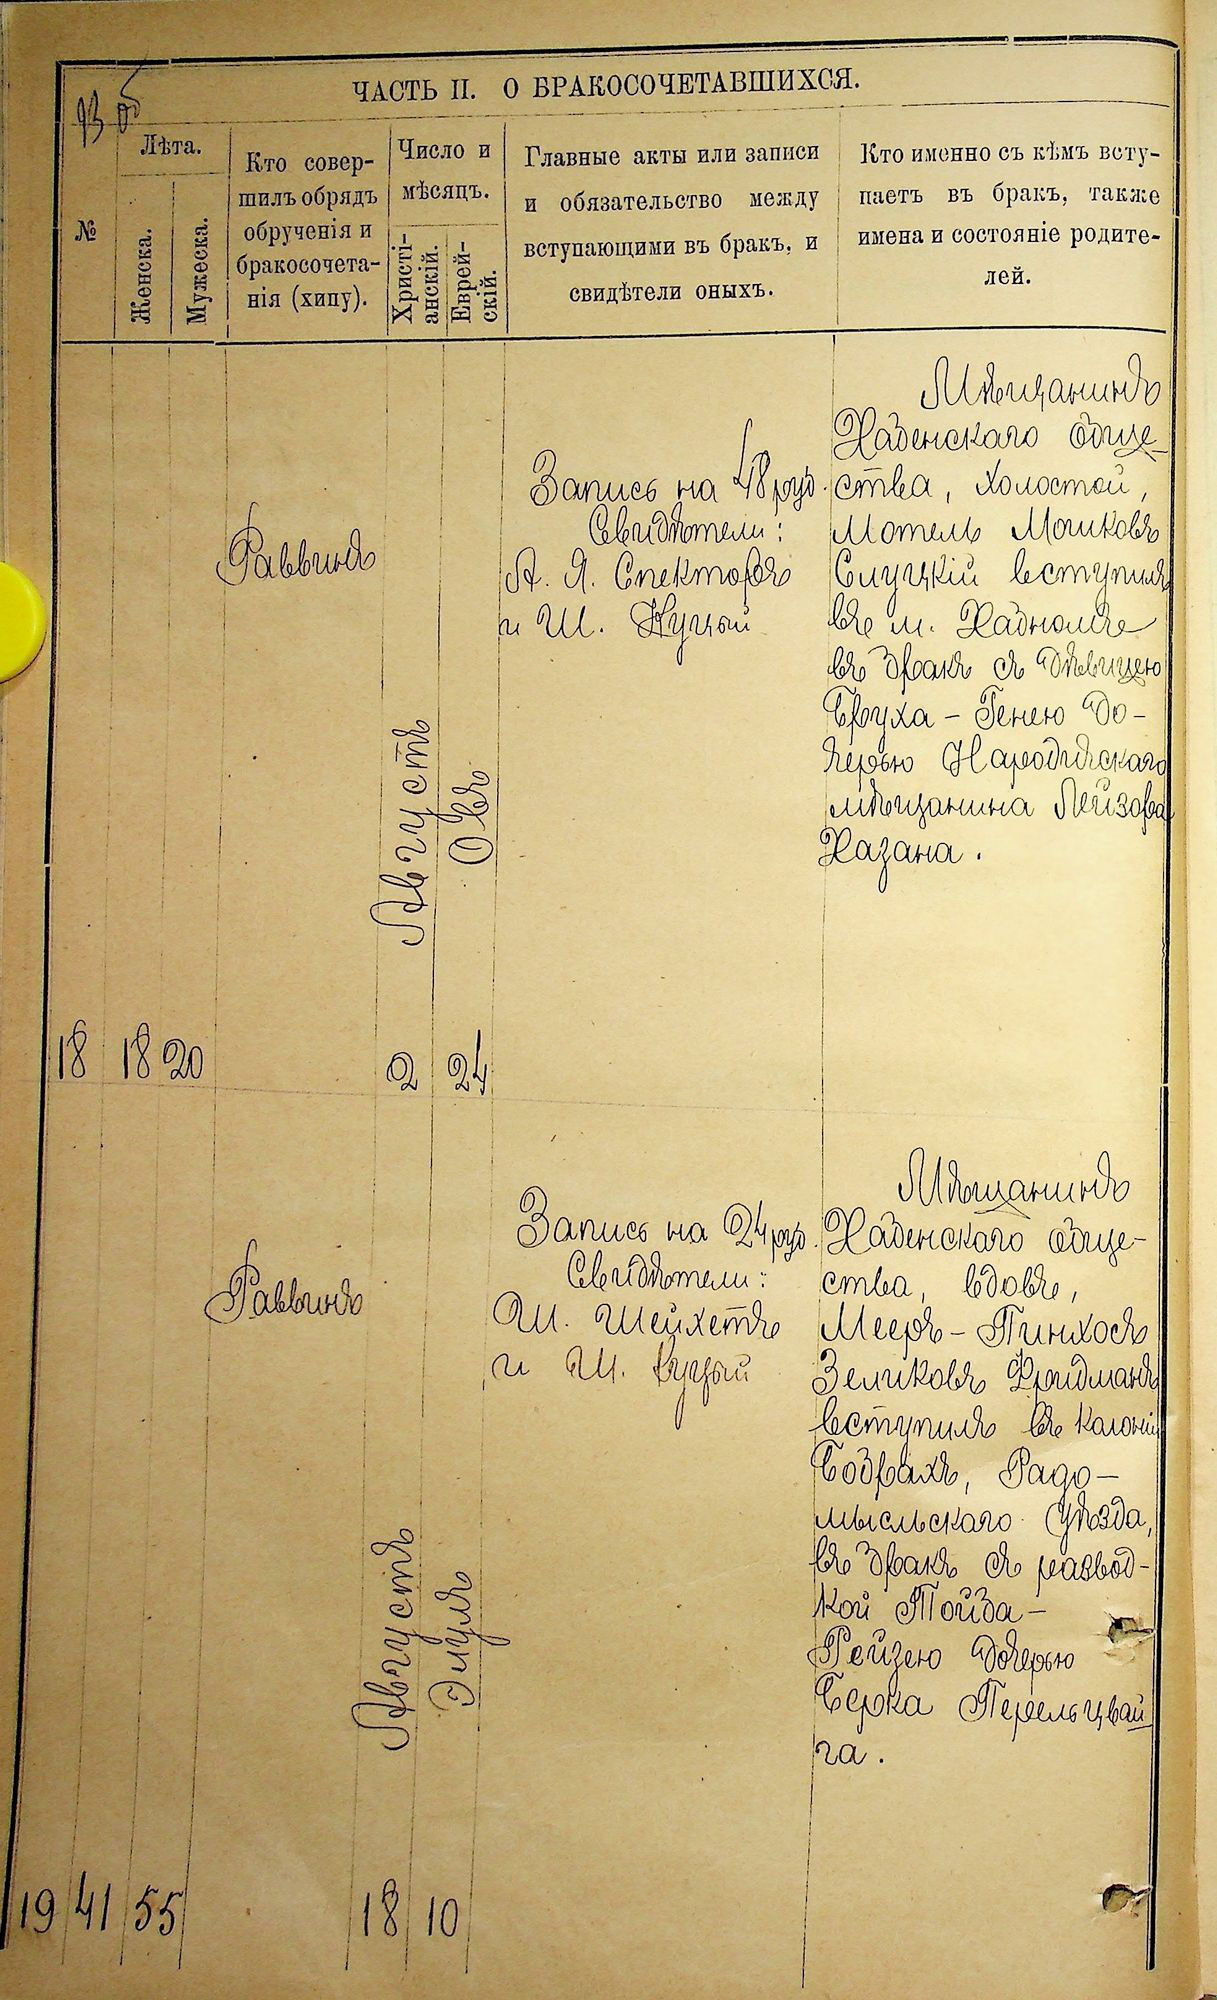 93 об
ЧАСТЬ II. О БРАКОСОЧЕТАВШИХСЯ.
№
Лѣта.
Женска.
Мужеска.
Кто совер-
шилъ обрядъ
обрученія и
бракосочета-
нія (хипу).
Число и
мѣсяцъ.
Христі-
анскій.
Еврей-
скій.
Главные акты или записи
и обязательство между
вступающими въ бракъ, и
свидѣтели оныхъ.
Кто именно съ кѣмъ всту-
паетъ въ бракъ, также
имена и состояніе родите-
лей.
18
18
20
Раввинъ
Августъ
2
Овъ
24
Запись на 48 руб.
Свидѣтели:
А. Я. Спекторъ
и Ш. Куцый
Мѣщанинъ
Хабенскаго обще-
ства, холостой,
Мотель Мошковъ
Слуцкій вступилъ
въ м. Хабномъ
въ бракъ съ дѣвицею
Бруха-Генею до-
черью Народичскаго
мѣщанина Лейзора
Хазана.
19
41
55
Раввинъ
Августъ
18
Элуля
10
Запись на 24 руб.
Свидѣтели:
Ш. Шейхетъ
и Ш. Куцый
Мѣщанинъ
Хабенскаго обще-
ства, вдовъ,
Мееръ-Пинхосъ
Зеликовъ Фридманъ
вступилъ въ колоніи
Бобрахъ, Радо-
мысльскаго уѣзда,
въ бракъ съ развод-
кой Тойба-
Рейзею дочерью
Берка Перельцвай
га.